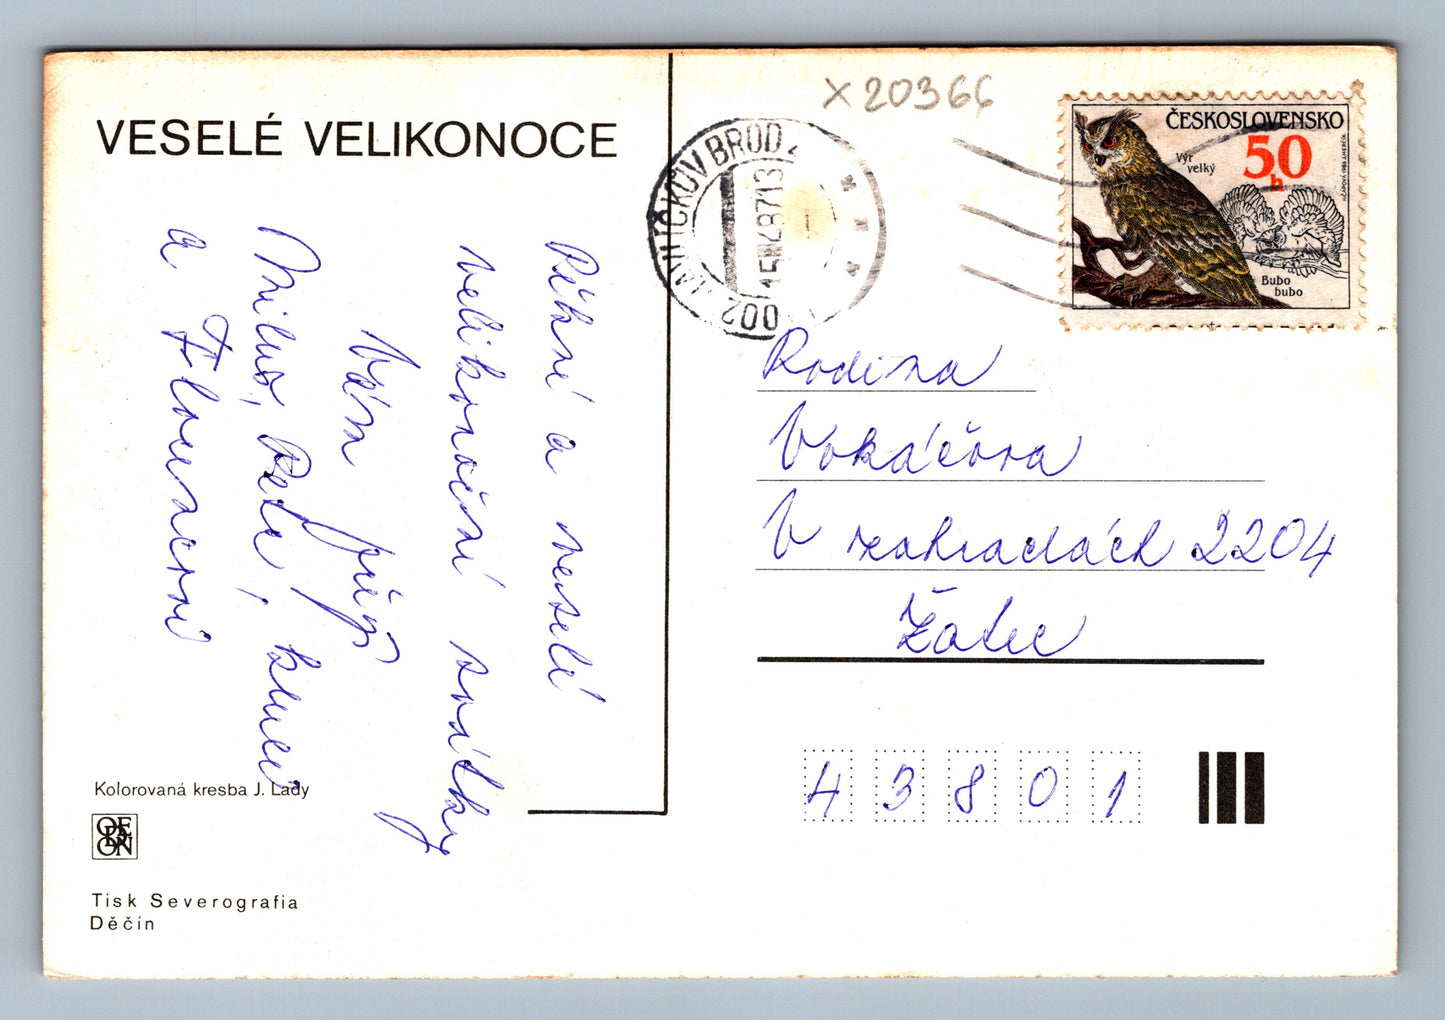 VESELÉ VELIKONOCE
Pěkné a veselé
velikonoční svátky
Vám přejí
Miluš, Petr,
a
Kolorovaná kresba J. Lady
ODEON
Tisk Severografia
Děčín
X 20366
HAVLÍČKŮV BROD 2
15.IV.87 13
002
ČESKOSLOVENSKO
50
h
Výr
velký
Bubo
bubo
Rodina
Vokáčova
V zahradách 2204
Žatec
43801